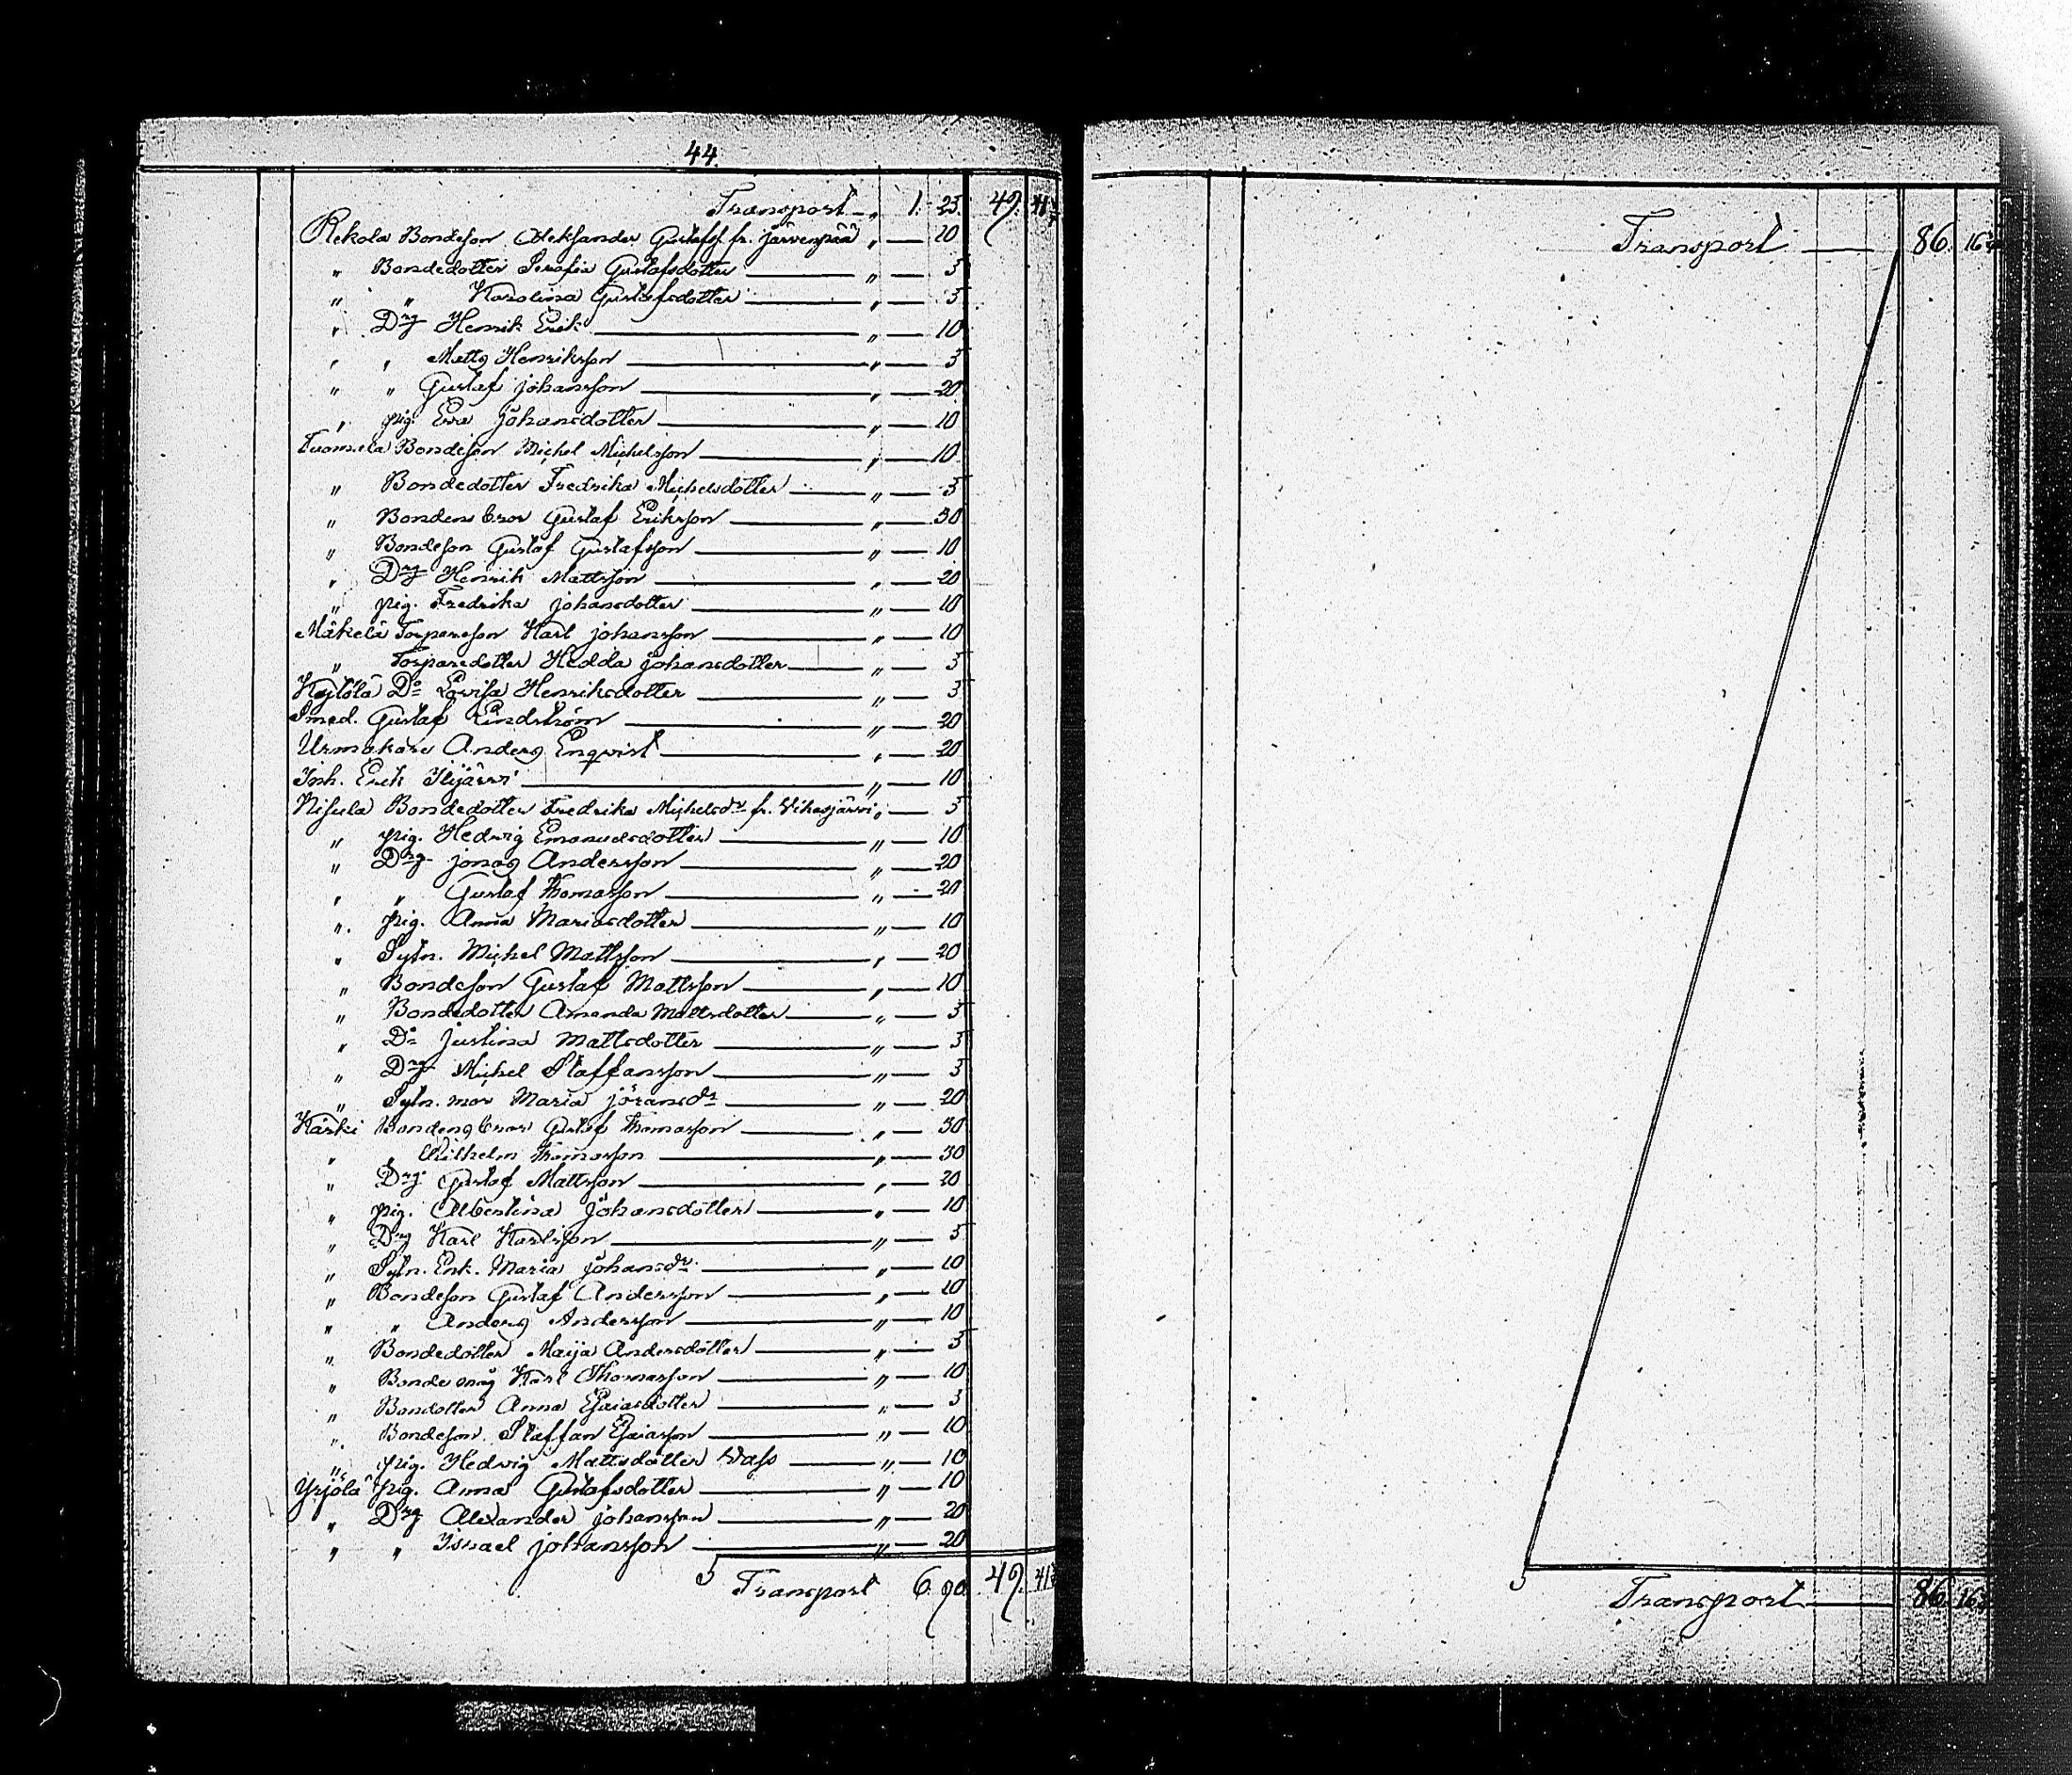 44.
Transport „ 1. 23. 49. 41
Rekola Bondeson Aleksander Gustafss. fr. Järvenpää „ — 20
„ Bondedotter Serafia Gustafsdotter „ — 5
„ „ Karolina Gustafsdotter „ — 5
„ Drg Henrik Erik „ — 10
„ „ Matts Henriksson „ — 5
„ „ Gustaf Johansson „ — 20
„ pig. Eva Johansdotter „ — 10
Tuomela Bondeson Michel Michelsson „ — 10
„ Bondedotter Fredrika Michelsdotter „ — 5
„ Bondens bror Gustaf Eriksson „ — 30
„ Bondeson Gustaf Gustafsson „ — 10
„ Drg Henrik Mattsson „ — 20
„ pig. Fredrika Johansdotter „ — 10
Mäkelä Torpareson Karl Johansson „ — 10
„ Torparedotter Hedda Johansdotter „ — 5
Kylölä Do Lovisa Henriksdotter „ — 5
Smed. Gustaf Lindström „ — 20
Urmakare Anders Enqvist „ — 20
Inh. Erik Ilijärvi „ — 10
Nisula Bondedotter Fredrika Michelsdr fr. Vihasjärvi „ — 5
„ pig. Hedvig Emanuelsdotter „ — 10
„ Drg Jonas Andersson „ — 20
„ „ Gustaf Thomasson „ — 20
„ pig. Anna Mariasdotter „ — 10
„ Sytn. Michel Mattsson „ — 20
„ Bondeson Gustaf Mattsson „ — 10
„ Bondedotter Amanda Mattsdotter „ — 5
„ Do Justina Mattsdotter „ — 5
„ Drg Michel Staffansson „ — 5
„ Sytn. mor Maria Jöransdr „ — 20
Kärki Bondens bror Gustaf Thomasson „ — 30
„ „ Wilhelm Thomasson „ — 30
„ Drg Gustaf Mattsson „ — 20
„ pig. Albertina Johansdotter „ — 10
„ Drg Karl Karlsson „ — 5
„ Sytn. Enk. Maria Johansdr „ — 10
„ Bondeson Gustaf Andersson „ — 10
„ „ Anders Andersson „ — 10
„ Bondedotter Maija Andersdotter „ — 5
„ Bondemåg Karl Thomasson „ — 10
„ Bondotter Anna Esaiasdotter „ — 5
„ Bondeson Staffan Esaiasson „ — 10
„ pig. Hedvig Mattsdotter Vass „ — 10
Yrjölä pig. Anna Gustafsdotter „ — 10
„ Drg Alexander Johansson „ — 20
„ „ Isaael Johansson „ — 20
Transport 6. 90. 49. 41
Transport 86. 16
Transport 86. 16